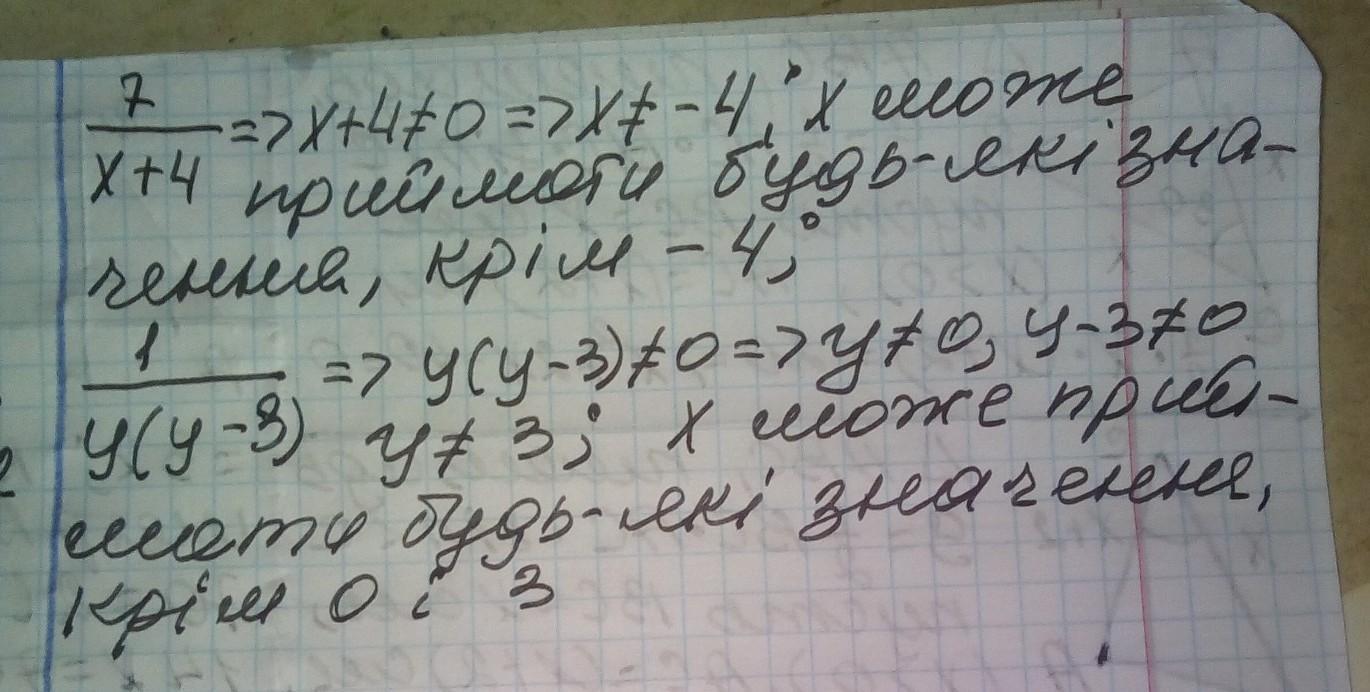 7/(x+4) => x+4≠0 => x≠ -4; x може
приймати будь-які зна-
чення, крім -4;
1/(y(y-3)) => y(y-3)≠0 => y≠0, y-3≠0
y≠ 3; x може прий-
мати будь-які значення,
крім 0 і 3